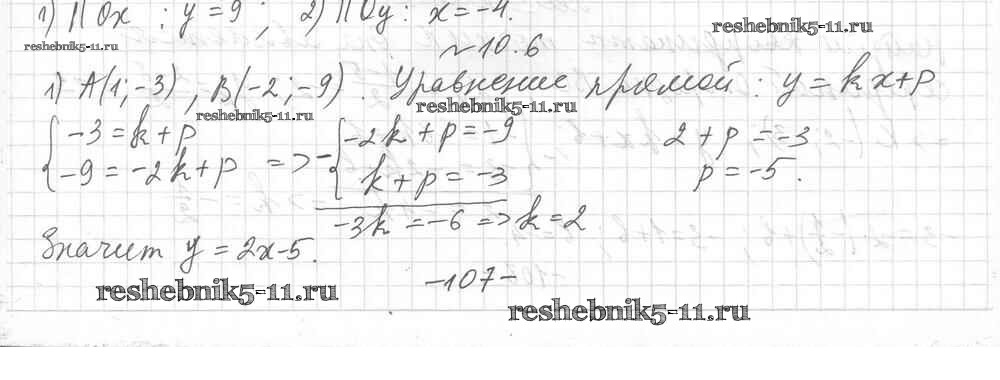 1) ∥ Ox : y = 9 ; 2) ∥ Oy : x = -4.
reshebnik5-11.ru
reshebnik5-11.ru
~ 10.6
1) A(1; -3), B(-2; -9). Уравнение прямой : y = kx + p
reshebnik5-11.ru
reshebnik5-11.ru
{ -3 = k + p => - { -2k + p = -9 2 + p = -3
{ -9 = -2k + p { k + p = -3 p = -5.
-3k = -6 => k = 2
Значит y = 2x - 5.
-107-
reshebnik5-11.ru
reshebnik5-11.ru